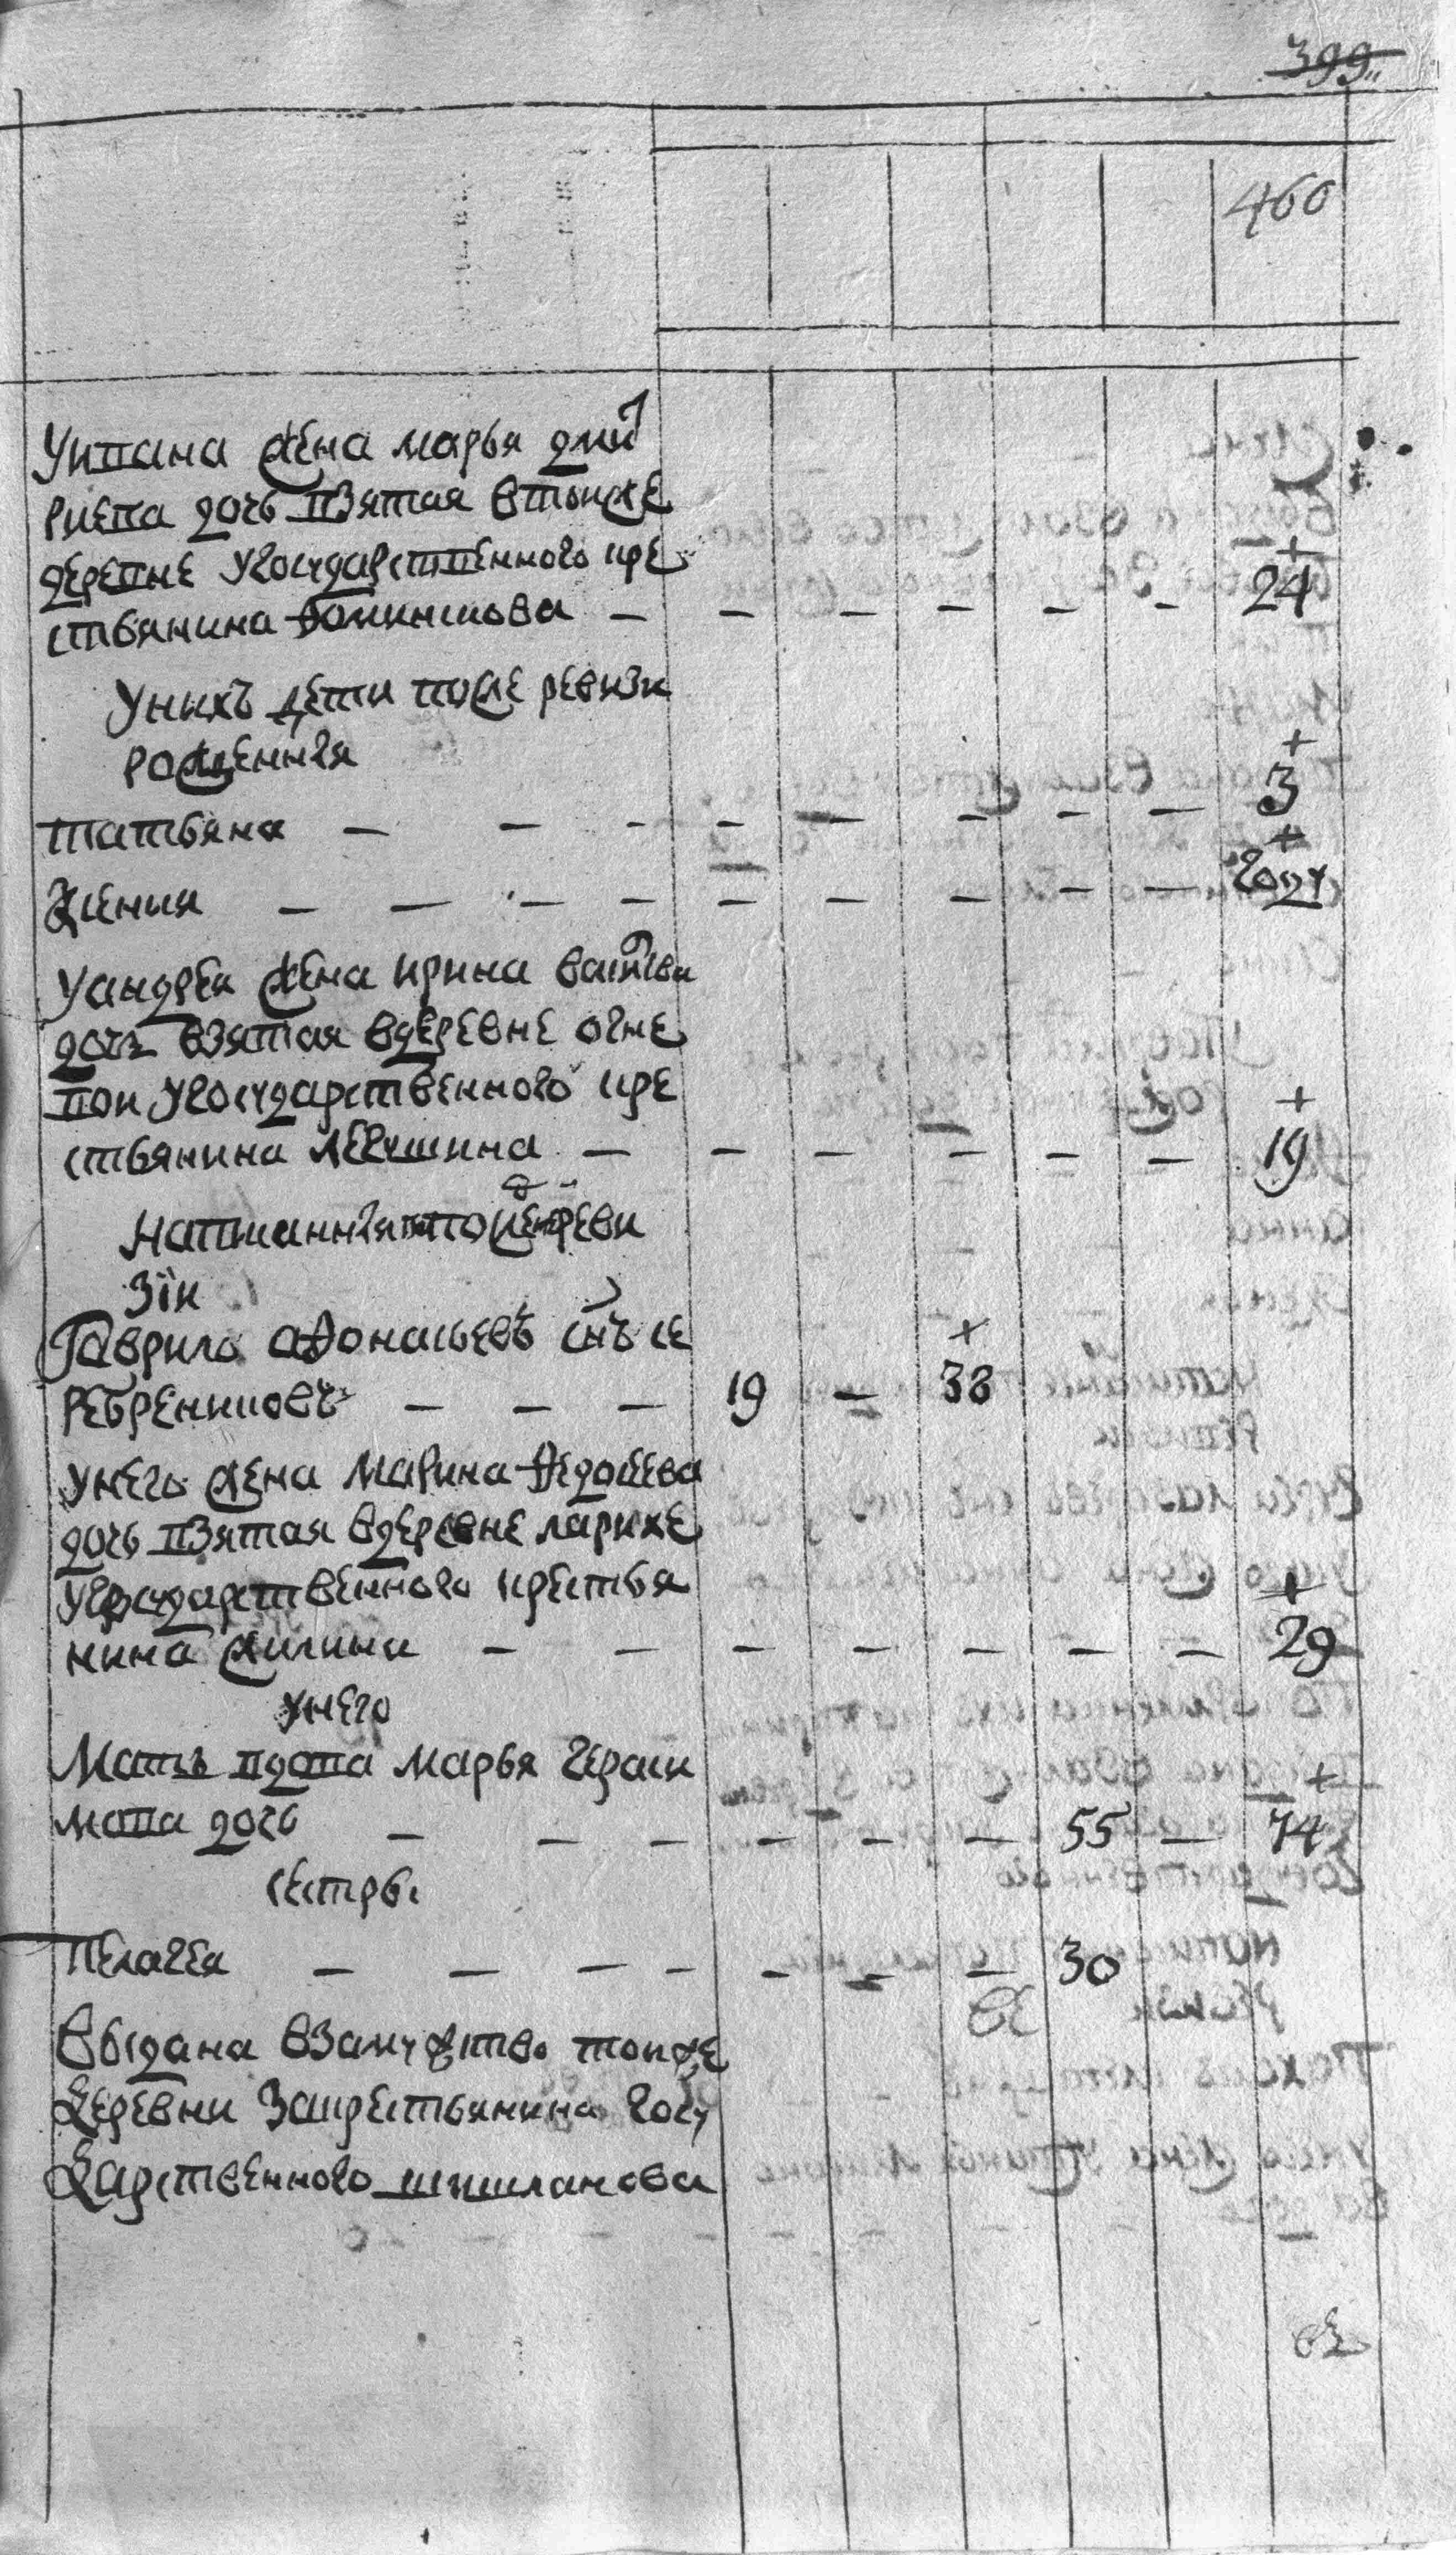 399
460
Уивана жена марья дми
риева дочь взятая втоиже
деревне угосударственного кре
стьянина фоминцова — — — — — — 24
Унихъ дети после ревизи
рожденныя
татьяна — — — — — — — — 3
Ксения — — — — — — — — — году
Уандрея жена ирина васильева
дочь взятая вдеревне огне
вои угосударственного кре
стьянина левушина — — — — — — 19
Написанныя попоследней реви
зіи
Гаврило афонасьевъ снъ се
ребрениковъ — — — 19 — 38
унего жена марина федосеева
дочь взятая вдеревне ларихе
угосударственного крестья
нина жилина — — — — — — — 29
унего
Мать вдова марья гераси
мова дочь — — — — — — 55 — 74
сестры
пелагея — — — — — — — 30
Выдана взамужство тоиже
Деревни Закрестьянина Госу
Дарственного шишланова